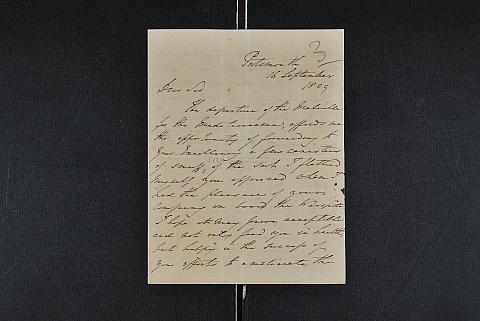 Portsmouth
16 September
1829
Dear Sir
The departure of the
for the Mediterranean, affords me
the opportunity of forwarding to
Your Excellency a few canisters
of snuff, of the sort I flatter
myself you approved when I
had the pleasure of your
company on board the Warspite
I hope it may prove acceptable
and not only find you in health
but happy in the success of
your efforts to ameliorate the